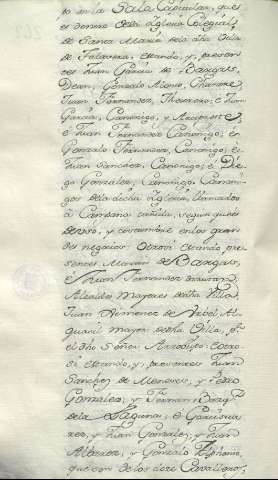 to en la Sala Capitular, que
es dentro dela Iglesia Colegial
de Santa Maria dela dha Villa
de Talavera, estando, y, presen
tes Juan Garcia de Bargas,
Dean, Gonzalo Alonso, Chantre,
Juan Fernandez, Thesorero: è Juan
Garcia, Canonigo, y Arcipreste,
è Juan Fernandez Canonigo: è
Gonzalo Fernandez, Canonigo, è
Juan Sanchez, Canonigo; è Die
go Gonzalez, Canonigo, Canoni
gos dela dicha Iglesia, llamados
à Campana tañida, segun que es
de uso, y costumbre en los gran
des negocios: Otrosi estando, pre
sentes Martin de Bargas,
è Juan Fernandez
Alcaldes mayores de dha Villa,
Juan Ximenez de Al
guacil mayor de dha Villa, p.r
el dho Señor Arzobispo: è otro
si estando, y, presentes Juan
Sanchez de Meneses, y Pedro
Gonzalez, y
dela Laguna, è Garcisua
rez, y Juan Gonzalez, y Juan
Alvarez, y Gonzalo Alphonso,
que son delos doze Cavalleros,